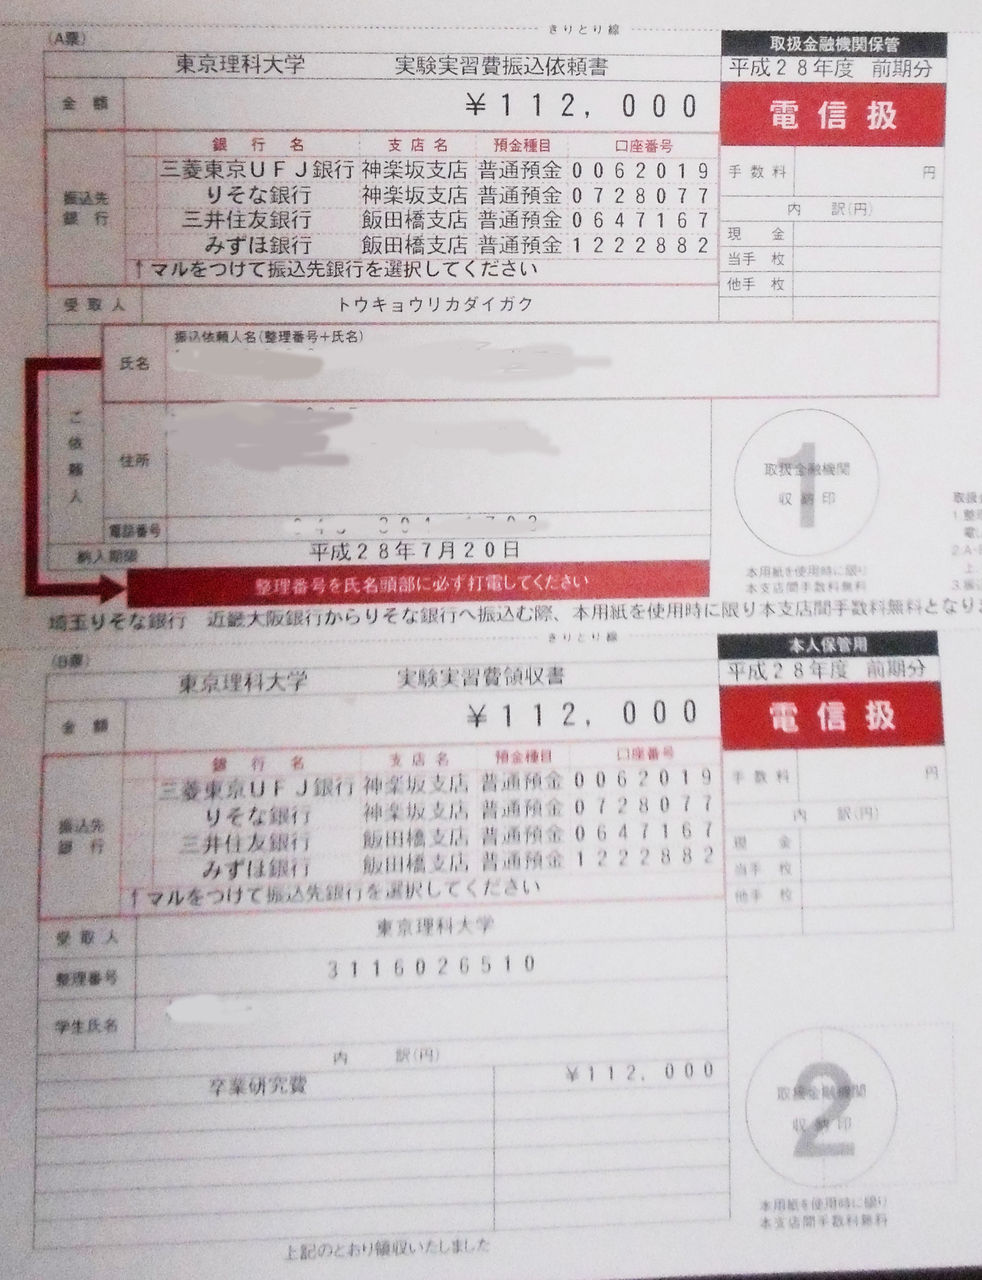 きりとり線
(A票)
取扱金融機関保管
東京理科大学 実験実習費振込依頼書
平成28年度 前期分
金額 ¥112,000
電信扱
銀行名 支店名 預金種目 口座番号
三菱東京UFJ銀行 神楽坂支店 普通預金 0062019
りそな銀行 神楽坂支店 普通預金 0728077
三井住友銀行 飯田橋支店 普通預金 0647167
みずほ銀行 飯田橋支店 普通預金 1222882
振込先銀行
↑マルをつけて振込先銀行を選択してください
手数料 円
内訳(円)
現金
当手 枚
他手 枚
受取人 トウキョウリカダイガク
振込依頼人名(整理番号+氏名)
氏名
ご依頼人
住所
電話番号
納入期限 平成28年7月20日
整理番号を氏名頭部に必ず打電してください
1
取扱金融機関
収納印
本用紙を使用時に限り
本支店間手数料無料
埼玉りそな銀行 近畿大阪銀行からりそな銀行へ振込む際、本用紙を使用時に限り本支店間手数料無料となりま
きりとり線
(B票)
本人保管用
東京理科大学 実験実習費領収書
平成28年度 前期分
金額 ¥112,000
電信扱
銀行名 支店名 預金種目 口座番号
三菱東京UFJ銀行 神楽坂支店 普通預金 0062019
りそな銀行 神楽坂支店 普通預金 0728077
三井住友銀行 飯田橋支店 普通預金 0647167
みずほ銀行 飯田橋支店 普通預金 1222882
振込先銀行
↑マルをつけて振込先銀行を選択してください
手数料 円
内訳(円)
現金
当手 枚
他手 枚
受取人 東京理科大学
整理番号 3116026510
学生氏名
内訳(円)
卒業研究費 ¥112,000
2
取扱金融機関
収納印
本用紙を使用時に限り
本支店間手数料無料
上記のとおり領収いたしました